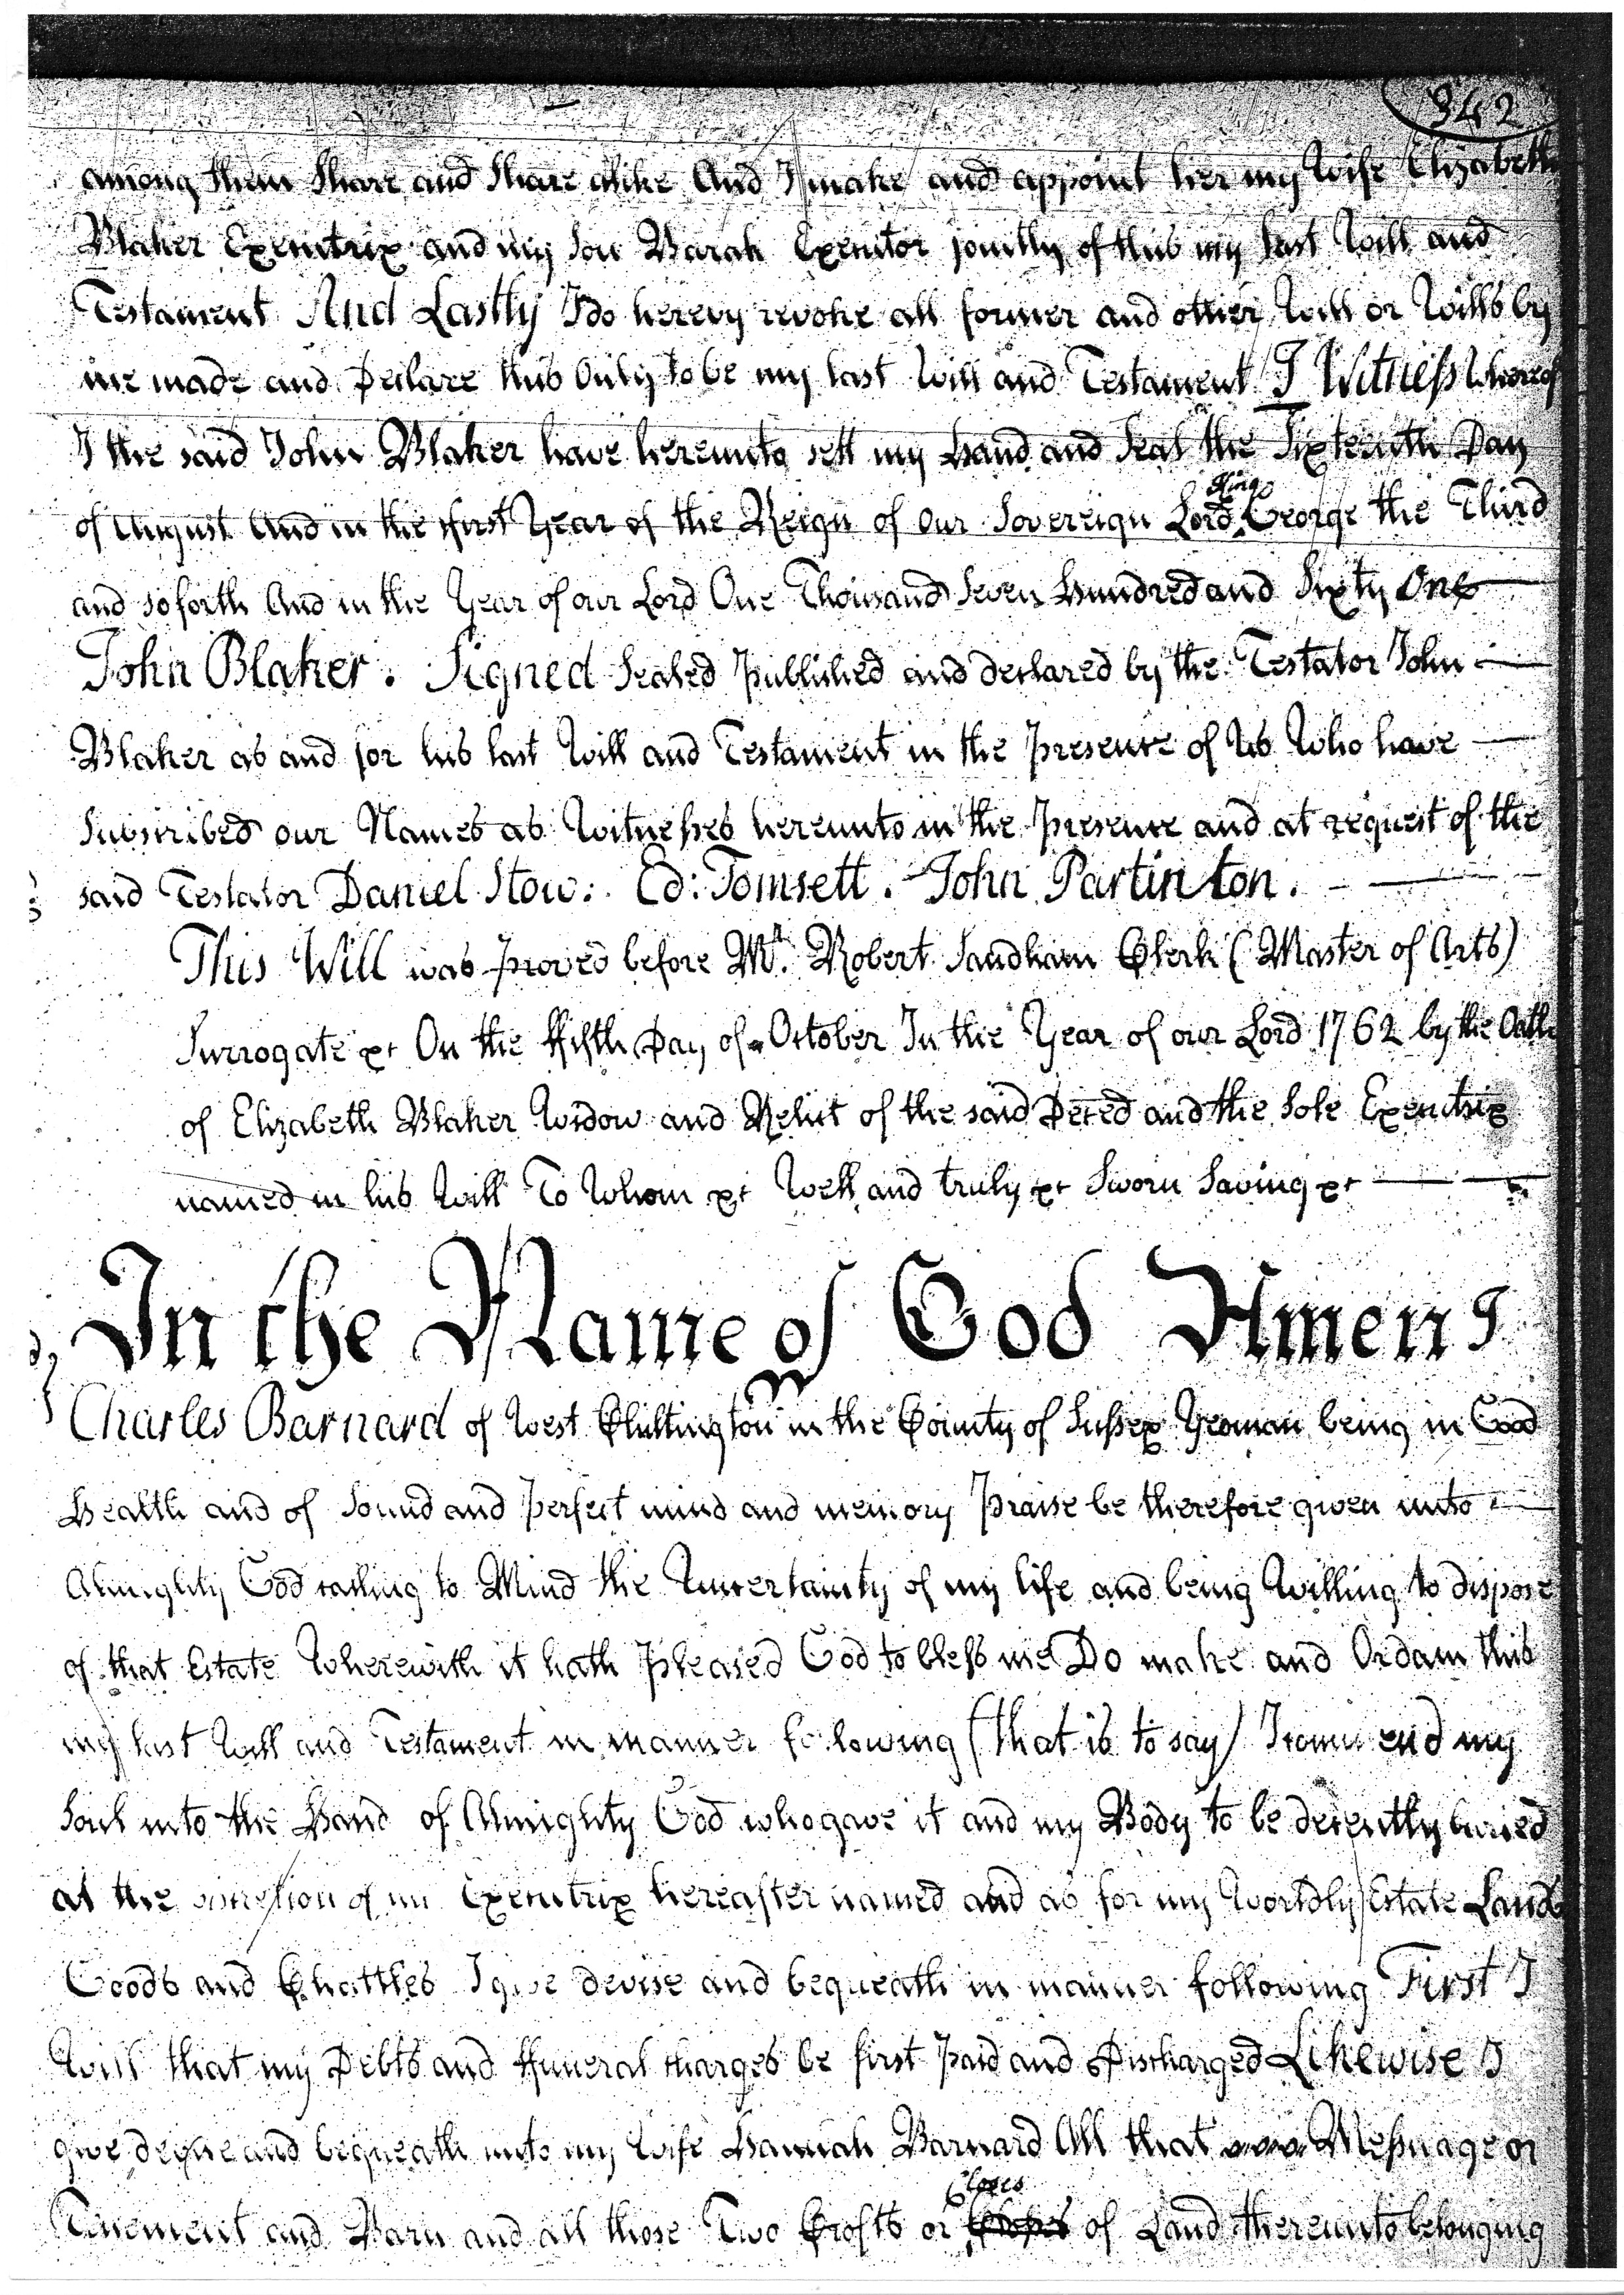 342
among them Share and Share alike And I make and appoint her my Wife Elizabeth
Blaker Executrix and my Son Barak Executor jointly of this my last Will and
Testament And Lastly I do hereby revoke all former and other Will or Wills by
me made and Declare this Only to be my last Will and Testament I Witness Whereof
I the said John Blaker have hereunto sett my Hand and Seal the Sixteenth Day
of August And in the ffirst Year of the Reign of Our Sovereign Lord King George the Third
and so forth And in the Year of our Lord One Thousand Seven Hundred and Sixty One
John Blaker. Signed Sealed Published and declared by the Testator John
Blaker as and for his last Will and Testament in the Presence of Us Who have
Subscribed our Names as Witnesses hereunto in the Presence and at request of the
said Testator Daniel Stow. Ed: Tomsett. John Partinton.
This Will was proved before Mr. Robert Sandham Clerk (Master of Arts)
Surrogate &c On the ffifth Day of October In the Year of our Lord 1762 by the Oath
of Elizabeth Blaker Widow and Relict of the said Deced and the Sole Executrix
named in his Will To Whom &c Well and truly &c Sworn Saving &c
In the Name of God Amen I
Charles Barnard of West Chiltington in the County of Sussex Yeoman being in Good
Health and of Sound and Perfect mind and memory Praise be therefore given unto
Almighty God calling to Mind the Uncertainty of my life and being Willing to dispose
of that Estate Wherewith it hath Pleased God to bless me Do make and Ordain this
my last Will and Testament in manner following (that is to say) I commend my
Soul into the Hand of Almighty God who gave it and my Body to be decently buried
at the discretion of my Executrix hereafter named and as for my Worldly Estate Lands
Goods and Chattles I give devise and bequeath in manner following First I
Will that my Debts and ffuneral charges be first Paid and Discharged Likewise I
give devise and bequeath unto my Wife Hannah Barnard All that Messuage or
Tenement and Barn and all those Two Crofts or Closes of Land thereunto belonging